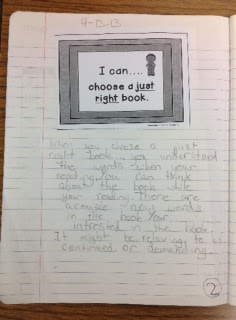 9-13-13
I can....
choose a just
right book.
When you choose a just
right book you understand
the words when your
reading. You can think
about the book while
your reading. There are
a couple new words
in the book. Your
intrested in the book.
It might be relaxing to us
confirmed or demanding.
2